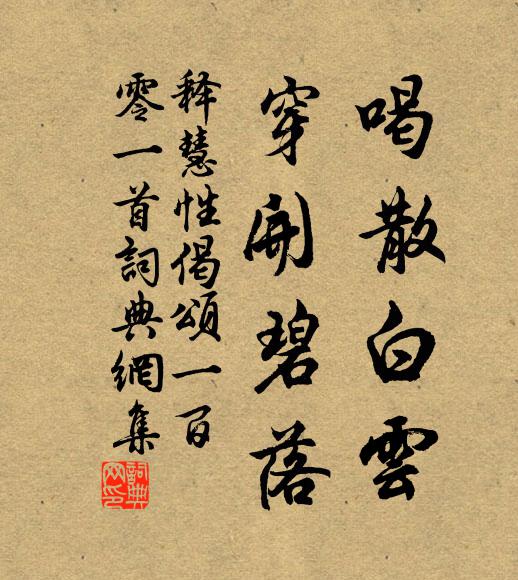 喝散白雲
穿開碧落
釋慧性偈頌一百
零一首詞典網集
詞典网印